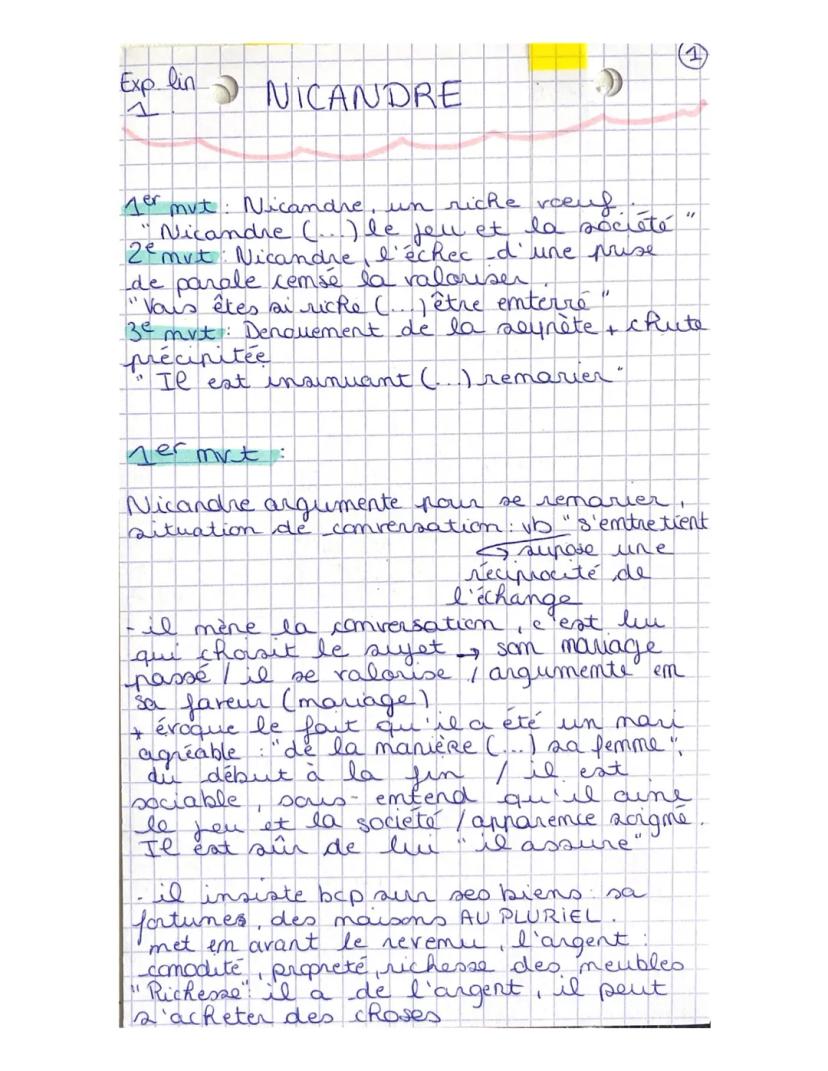 1
Exp lin
1.
NICANDRE
1er mvt : Nicandre, un riche vœuf.
"Nicandre (...) le jeu et la société"
2e mvt : Nicandre, l'échec d'une prise
de parole censé la valoriser.
"Vous êtes si riche (...) être enterré"
3e mvt : Denouement de la seynète + chute
précipitée
"Il est insinuant (...) remarier"
1er mvt :
Nicandre argumente pour se remarier,
situation de conversation : vb "s'entretient
↳ supose une
réciprocité de
l'échange
- il mène la conversation, c'est lui
qui choisit le sujet → son mariage
passé / il se valorise / argumente en
sa faveur (mariage)
+ évoque le fait qu'il a été un mari
agréable : "de la manière (...) sa femme",
du début à la fin / il est
sociable, sous-entend qu'il aime
le jeu et la société / apparence soigné.
Il est sûr de lui "il assure"
- il insiste bcp sur ses biens : sa
fortunes, des maisons AU PLURIEL.
met en avant le revenu, l'argent :
comodité, propreté, richesse des meubles
"Richesse" il a de l'argent, il peut
s'acheter des choses